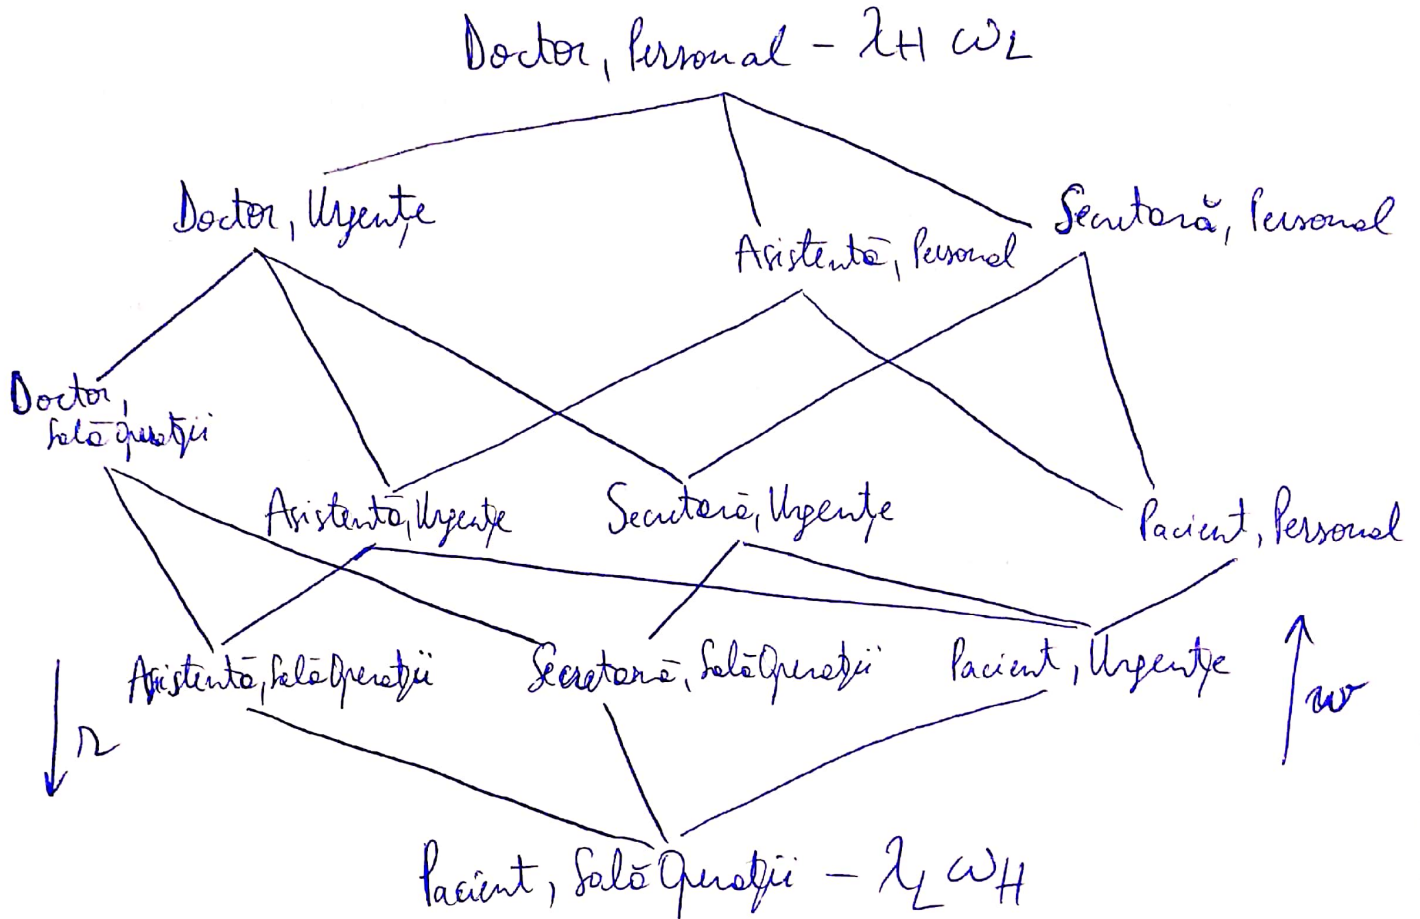 Doctor, Personal - λH ωL
Doctor, Urgențe
Asistentă, Personal
Secretară, Personal
Doctor,
Sală Operații
Asistentă, Urgențe
Secretară, Urgențe
Pacient, Personal
Asistentă, Sală Operații
Secretară, Sală Operații
Pacient, Urgențe
r
w
Pacient, Sală Operații - λL ωH